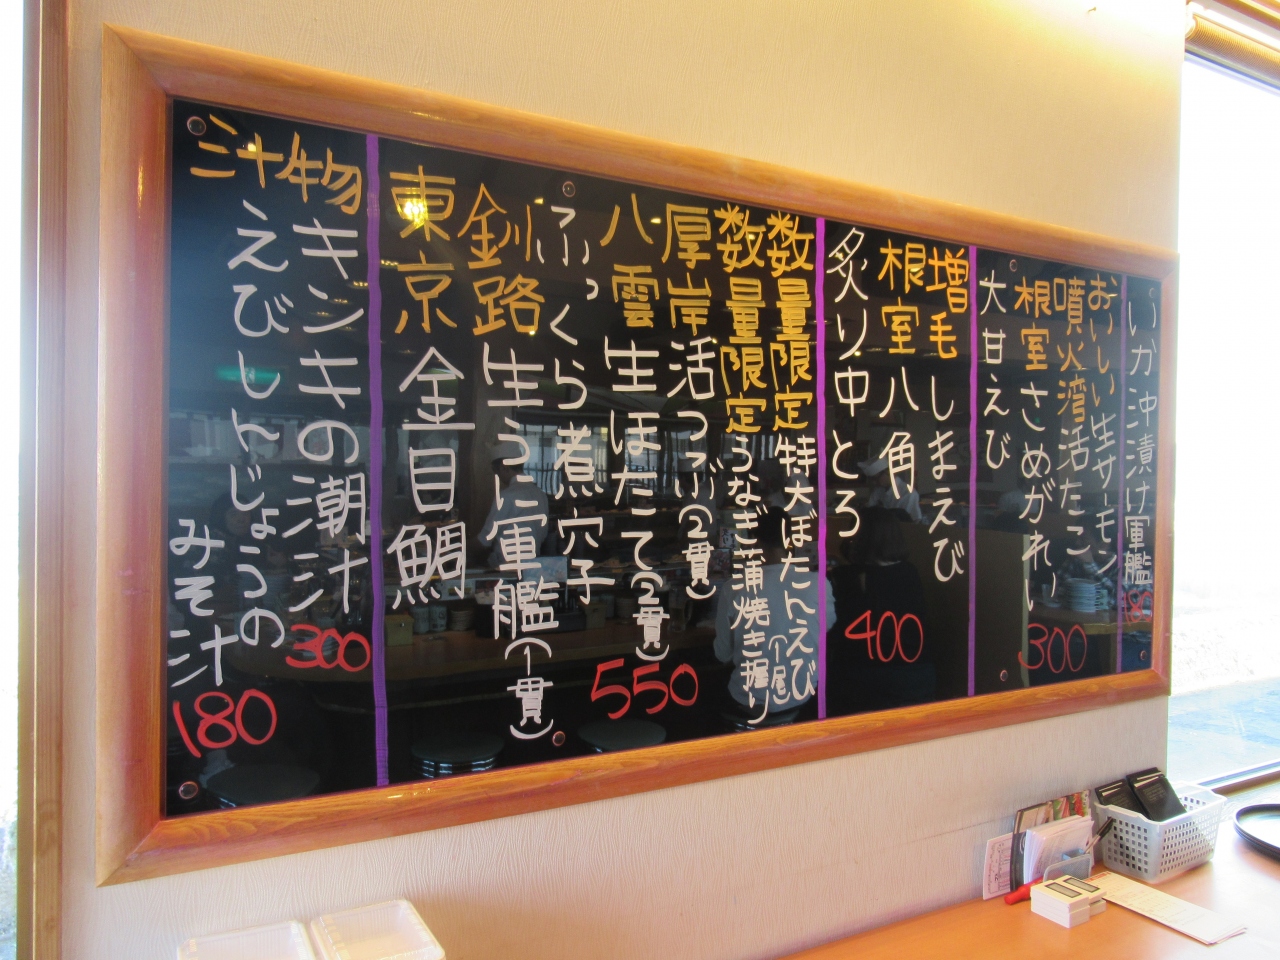 いか沖漬け軍艦
180
おいしい生サーモン
噴火湾活たこ
根室さめがれい
大甘えび
300
増毛しまえび
根室八角
炙り中とろ
400
数量限定特大ぼたんえび(1尾)
数量限定うなぎ蒲焼き握り
厚岸活つぶ(2貫)
八雲生ほたて(2貫)
ふっくら煮穴子
釧路生うに軍艦(1貫)
東京金目鯛
550
汁物
キンキの潮汁
300
えびしんじょうの
みそ汁
180